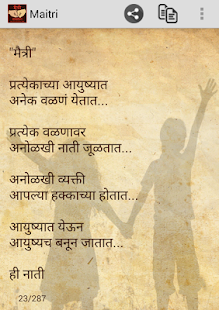 Maitri
"मैत्री"
प्रत्येकाच्या आयुष्यात
अनेक वळणं येतात...
प्रत्येक वळणावर
अनोळखी नाती जूळतात...
अनोळखी व्यक्ती
आपल्या हक्काच्या होतात...
आयुष्यात येऊन
आयुष्यच बनून जातात...
ही नाती
23/287